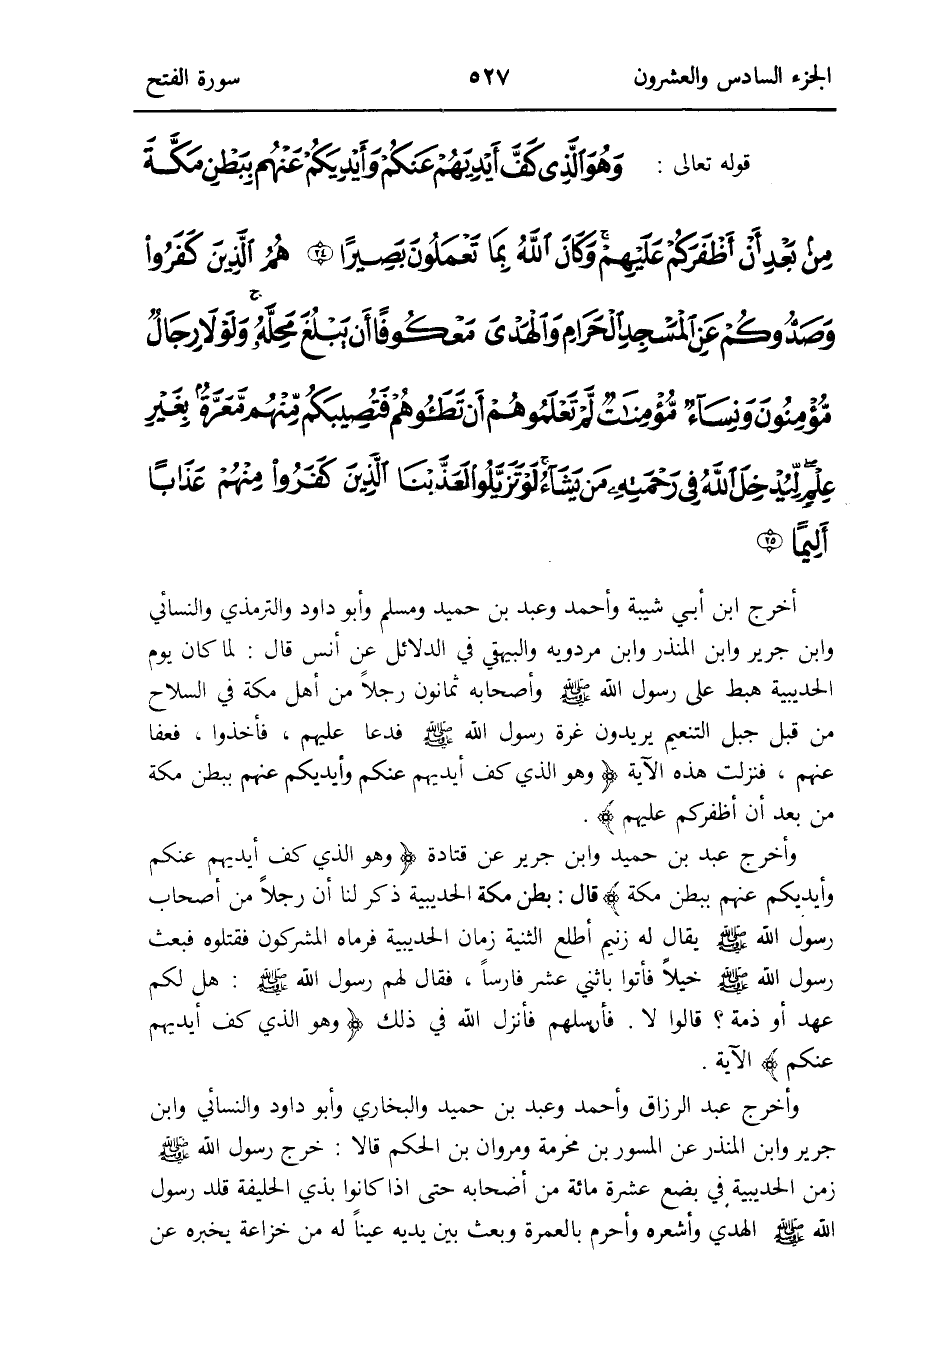 الجزء السادس والعشرون ٥٢٧ سورة الفتح
قوله تعالى : وَهُوَ ٱلَّذِى كَفَّ أَيْدِيَهُمْ عَنكُمْ وَأَيْدِيَكُمْ عَنْهُم بِبَطْنِ مَكَّةَ
مِنۢ بَعْدِ أَنْ أَظْفَرَكُمْ عَلَيْهِمْ ۚ وَكَانَ ٱللَّهُ بِمَا تَعْمَلُونَ بَصِيرًا ٢٤ هُمُ ٱلَّذِينَ كَفَرُوا۟
وَصَدُّوكُمْ عَنِ ٱلْمَسْجِدِ ٱلْحَرَامِ وَٱلْهَدْىَ مَعْكُوفًا أَن يَبْلُغَ مَحِلَّهُۥ ۚ وَلَوْلَا رِجَالٌ
مُّؤْمِنُونَ وَنِسَآءٌ مُّؤْمِنَٰتٌ لَّمْ تَعْلَمُوهُمْ أَن تَطَـُٔوهُمْ فَتُصِيبَكُم مِّنْهُم مَّعَرَّةٌۢ بِغَيْرِ
عِلْمٍ ۖ لِّيُدْخِلَ ٱللَّهُ فِى رَحْمَتِهِۦ مَن يَشَآءُ ۚ لَوْ تَزَيَّلُوا۟ لَعَذَّبْنَا ٱلَّذِينَ كَفَرُوا۟ مِنْهُمْ عَذَابًا
أَلِيمًا ٢٥
أخرج ابن أبي شيبة وأحمد وعبد بن حميد ومسلم وأبو داود والترمذي والنسائي
وابن جرير وابن المنذر وابن مردويه والبيهقي في الدلائل عن أنس قال : لما كان يوم
الحديبية هبط على رسول الله ﷺ وأصحابه ثمانون رجلاً من أهل مكة في السلاح
من قبل جبل التنعيم يريدون غرة رسول الله ﷺ فدعا عليهم ، فأخذوا ، فعفا
عنهم ، فنزلت هذه الآية ﴿ وهو الذي كف أيديهم عنكم وأيديكم عنهم ببطن مكة
من بعد أن أظفركم عليهم ﴾ .
وأخرج عبد بن حميد وابن جرير عن قتادة ﴿ وهو الذي كف أيديهم عنكم
وأيديكم عنهم ببطن مكة ﴾ قال : بطن مكة الحديبية ذكر لنا أن رجلاً من أصحاب
رسول الله ﷺ يقال له زنيم أطلع الثنية زمان الحديبية فرماه المشركون فقتلوه فبعث
رسول الله ﷺ خيلاً فأتوا باثني عشر فارساً ، فقال لهم رسول الله ﷺ : هل لكم
عهد أو ذمة ؟ قالوا لا . فأرسلهم فأنزل الله في ذلك ﴿ وهو الذي كف أيديهم
عنكم ﴾ الآية .
وأخرج عبد الرزاق وأحمد وعبد بن حميد والبخاري وأبو داود والنسائي وابن
جرير وابن المنذر عن المسور بن مخرمة ومروان بن الحكم قالا : خرج رسول الله ﷺ
زمن الحديبية في بضع عشرة مائة من أصحابه حتى اذا كانوا بذي الحليفة قلد رسول
الله ﷺ الهدي وأشعره وأحرم بالعمرة وبعث بين يديه عيناً له من خزاعة يخبره عن